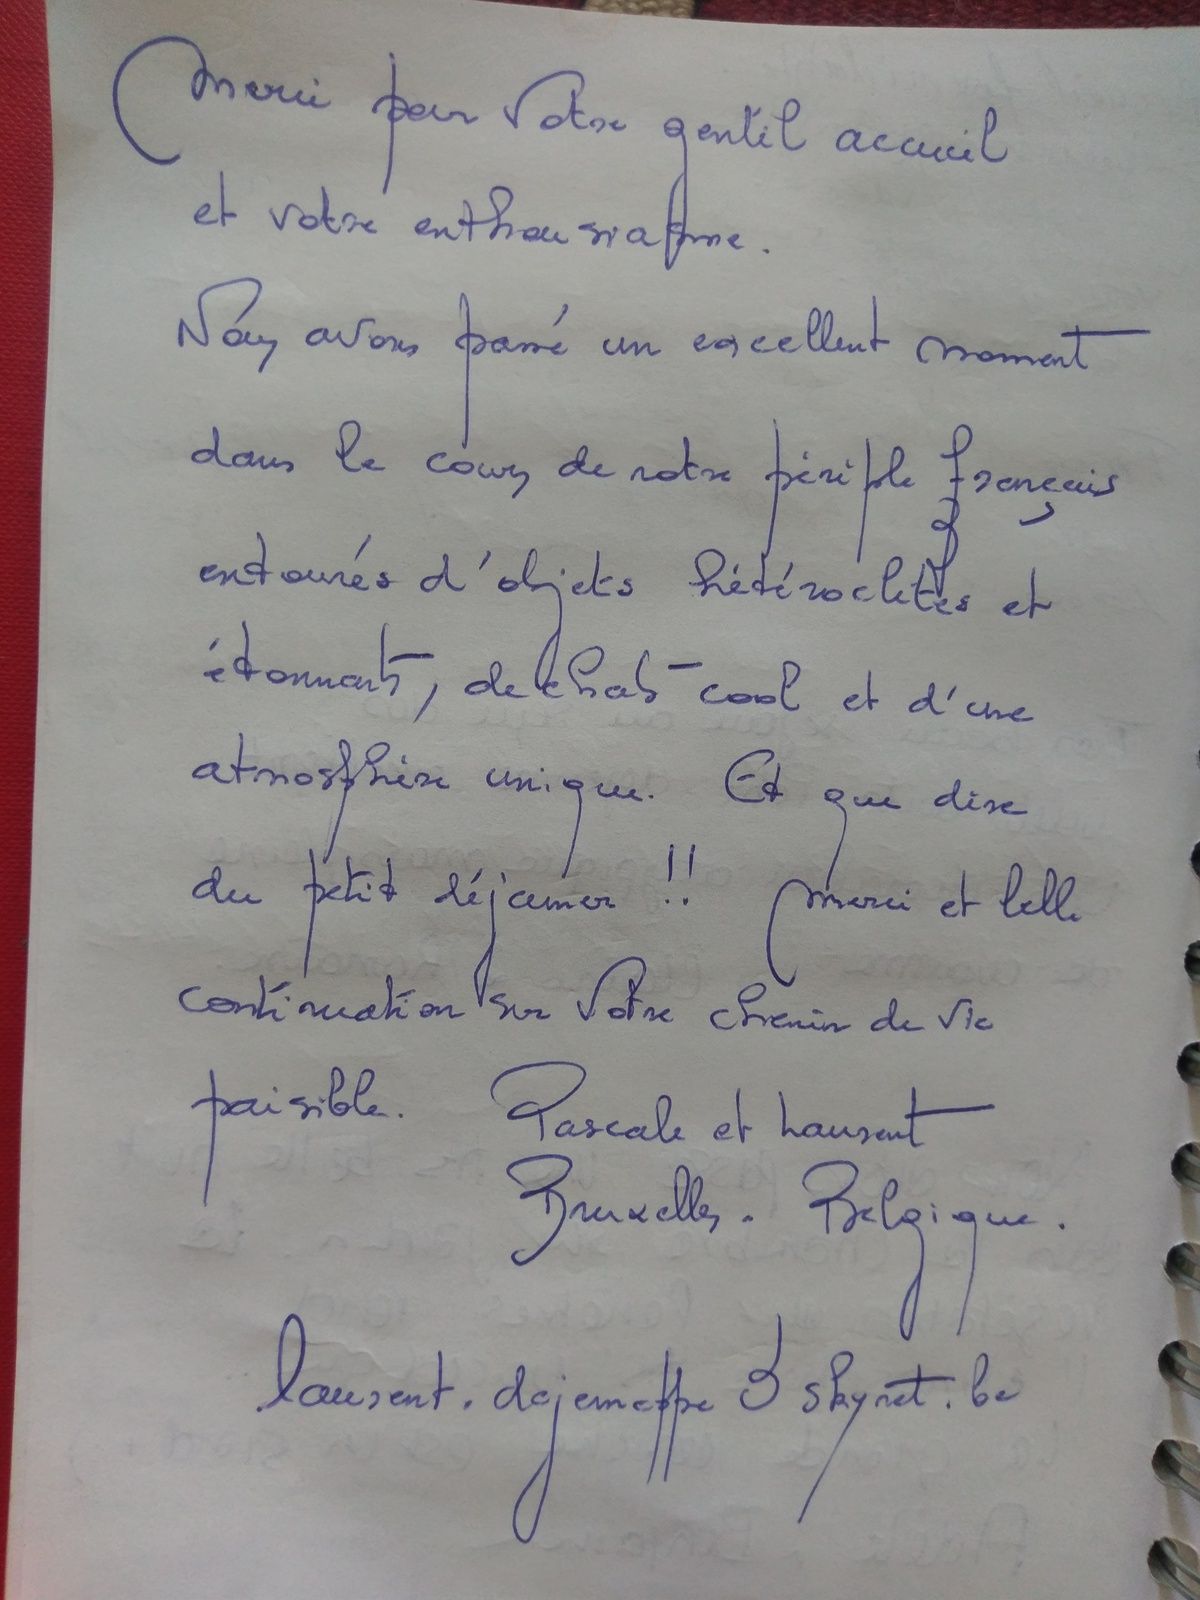 Merci pour votre gentil accueil
et votre enthousiasme.
Nous avons passé un excellent moment
dans le cours de notre périple français
entourés d'objets hétéroclites et
étonnants, de chats cool et d'une
atmosphère unique. Et que dire
du petit déjeuner !! Merci et belle
continuation sur votre chemin de vie
paisible. Pascale et Laurent
Bruxelles. Belgique.
laurent.dejemeppe @ skynet.be